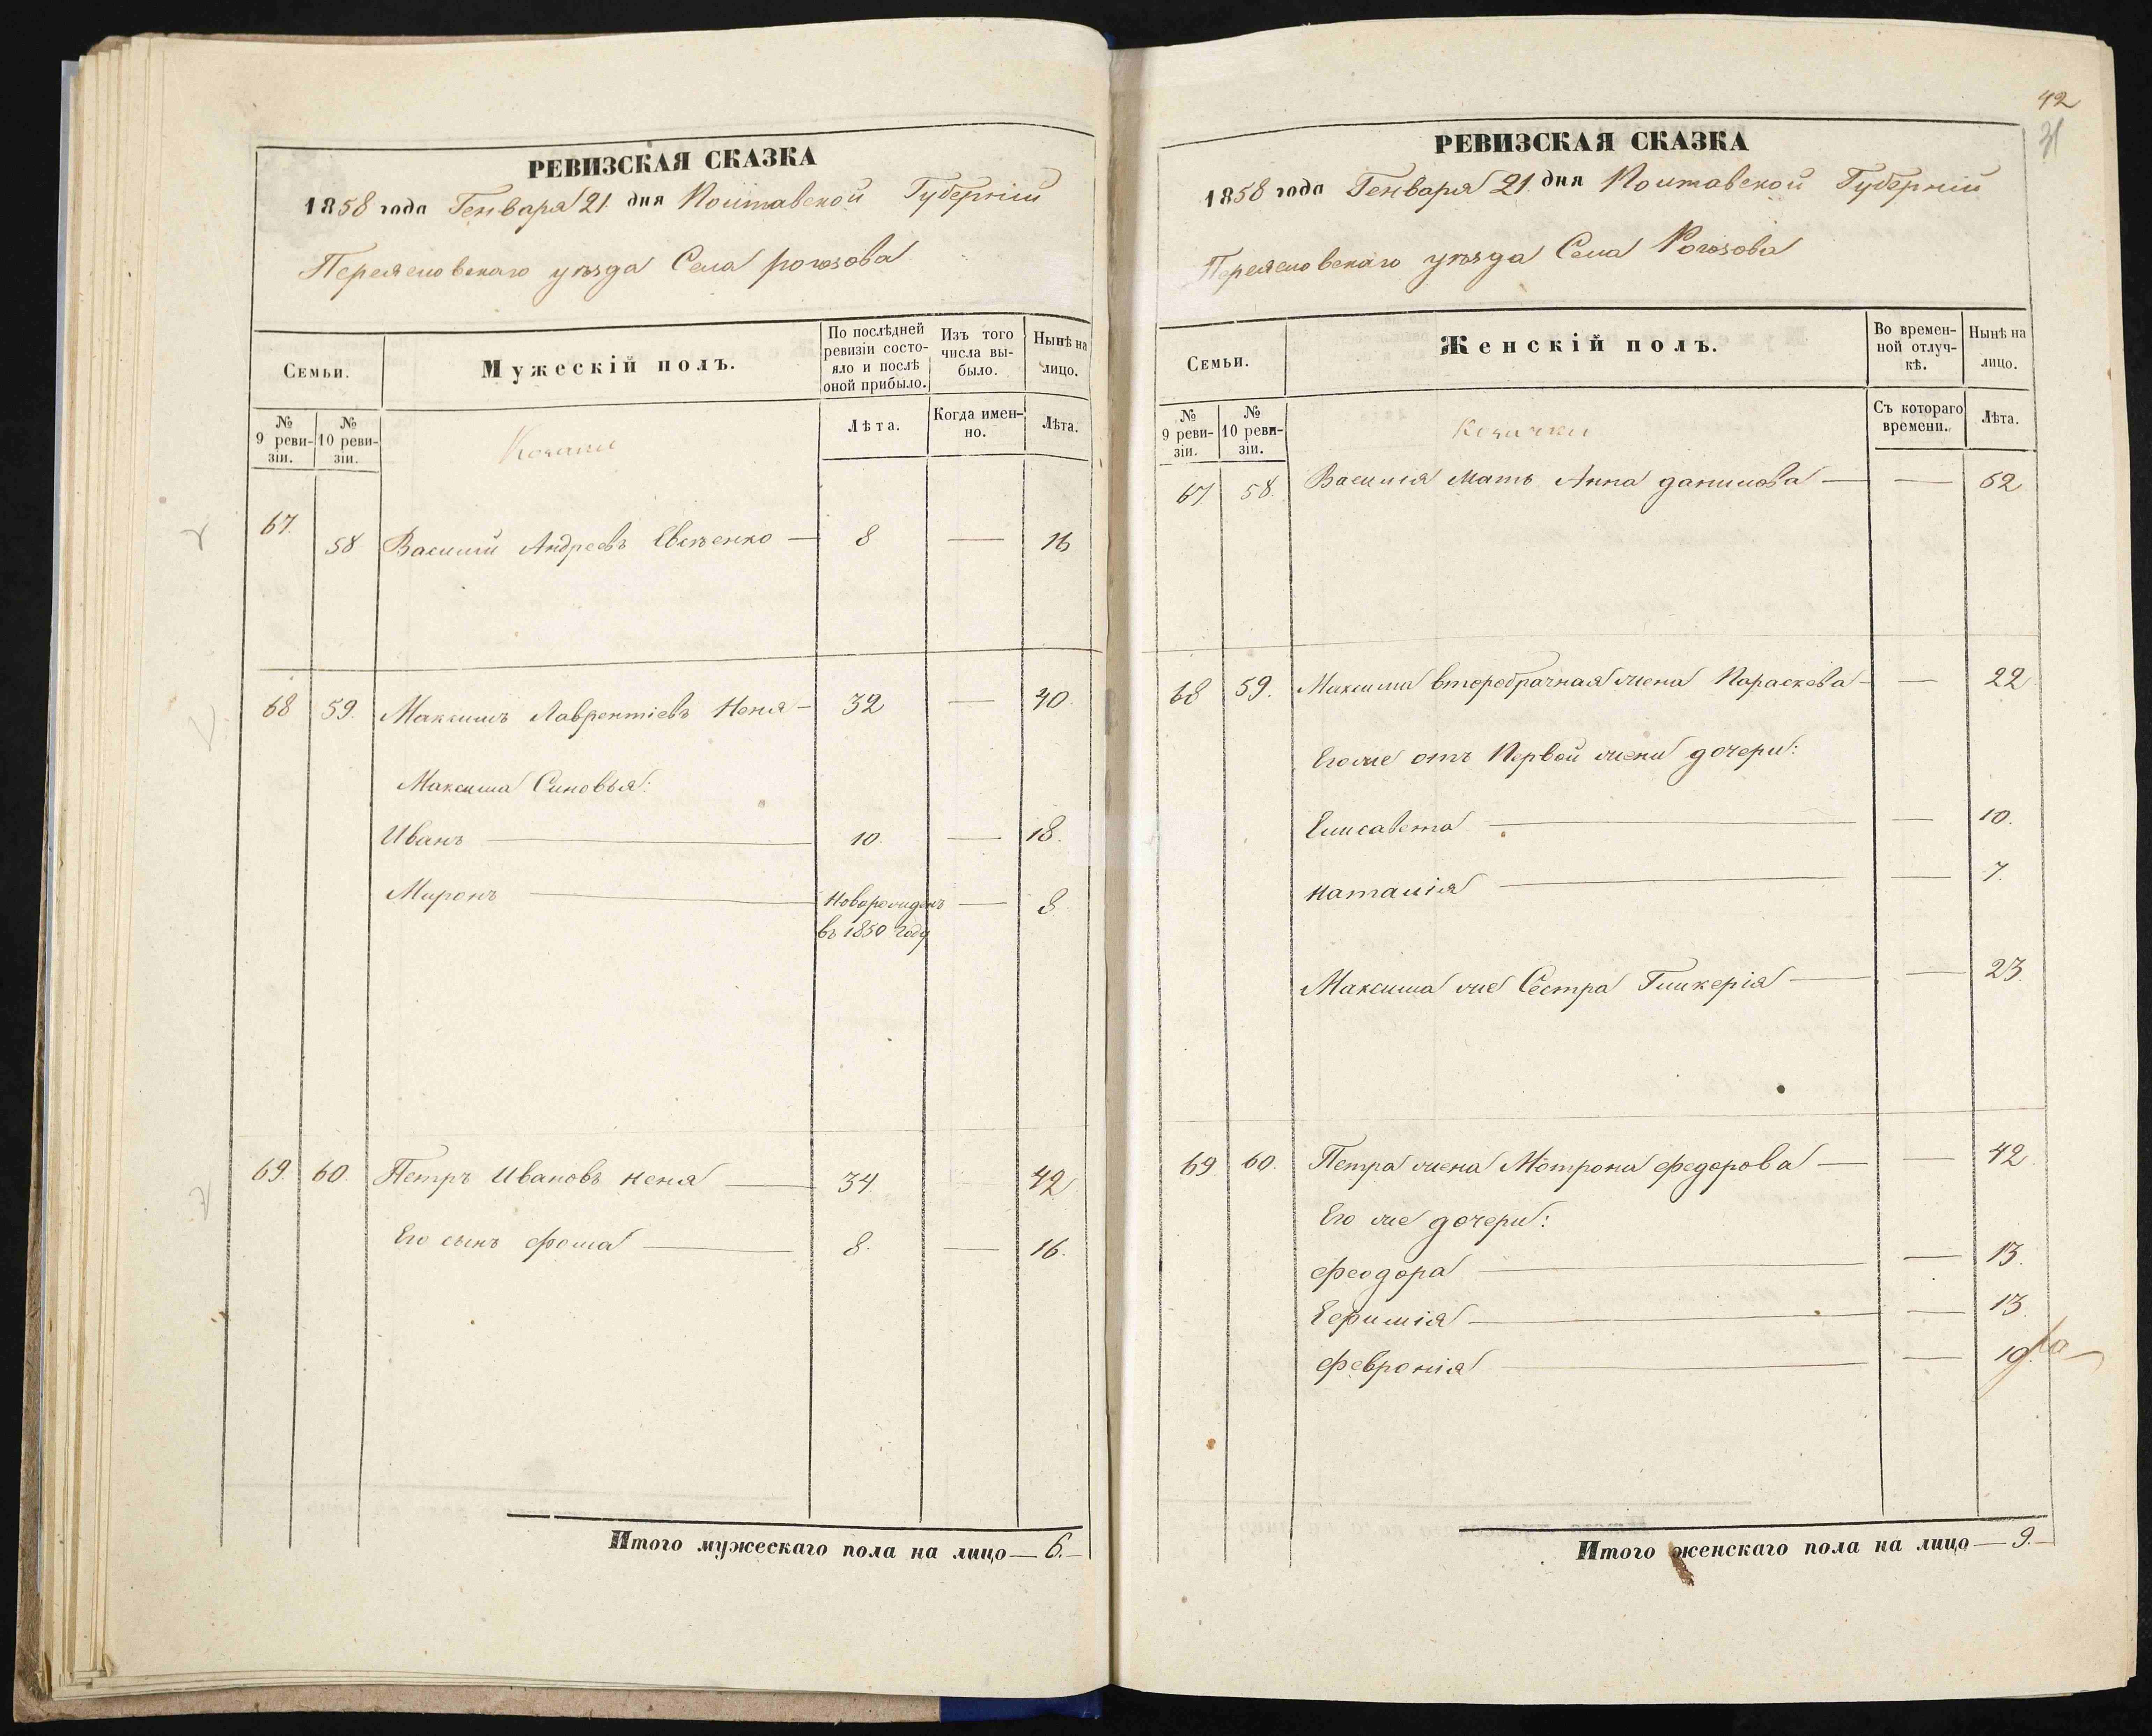 РЕВИЗСКАЯ СКАЗКА
1858 года Генваря 21 дня Полтавской Губерніи
Переяславскаго уѣзда Села рогозова
Семьи.
Мужескій полъ.
По послѣдней ревизіи состояло и послѣ оной прибыло.
Изъ того числа выбыло.
Нынѣ на лицо.
№ 9 ревизіи.
№ 10 ревизіи.
Козаки
Лѣта.
Когда именно.
Лѣта.
67. 58 Василій Андреевъ — 8 — 16
68 59. Максимъ Лаврентіевъ Неня — 32 — 40
Максима Синовья:
Иванъ — 10. — 18.
Миронъ — Новорожденъ — 8
въ 1850 году
69. 60. Петръ Ивановъ неня — 34. 42
Его сынъ фома — 8. — 16.
Итого мужескаго пола на лицо — 6. —
42
31
РЕВИЗСКАЯ СКАЗКА
1858 года Генваря 21. дня Полтавской Губерніи
Переяславскаго уѣзда Села Рогозова
Семьи.
Женскій полъ.
Во временной отлучкѣ.
Нынѣ на лицо.
№ 9 ревизіи.
№ 10 ревизіи.
Козачки
Съ котораго времени.
Лѣта.
67 58. Василія Мать Анна данилова — — 52
68 59. Максима второбрачная жена Параскева — — 22
Егоже отъ Первой жени дочери:
Елисавета — — 10.
наталія — — 7.
Максима же Сестра Гликерія — — 23.
69. 60. Петра жена Мотрона федорова — — 42
Его же дочери:
феодора — — 13.
Ефимія — — 13.
февронія — — 10.
Итого женскаго пола на лицо — 9. —